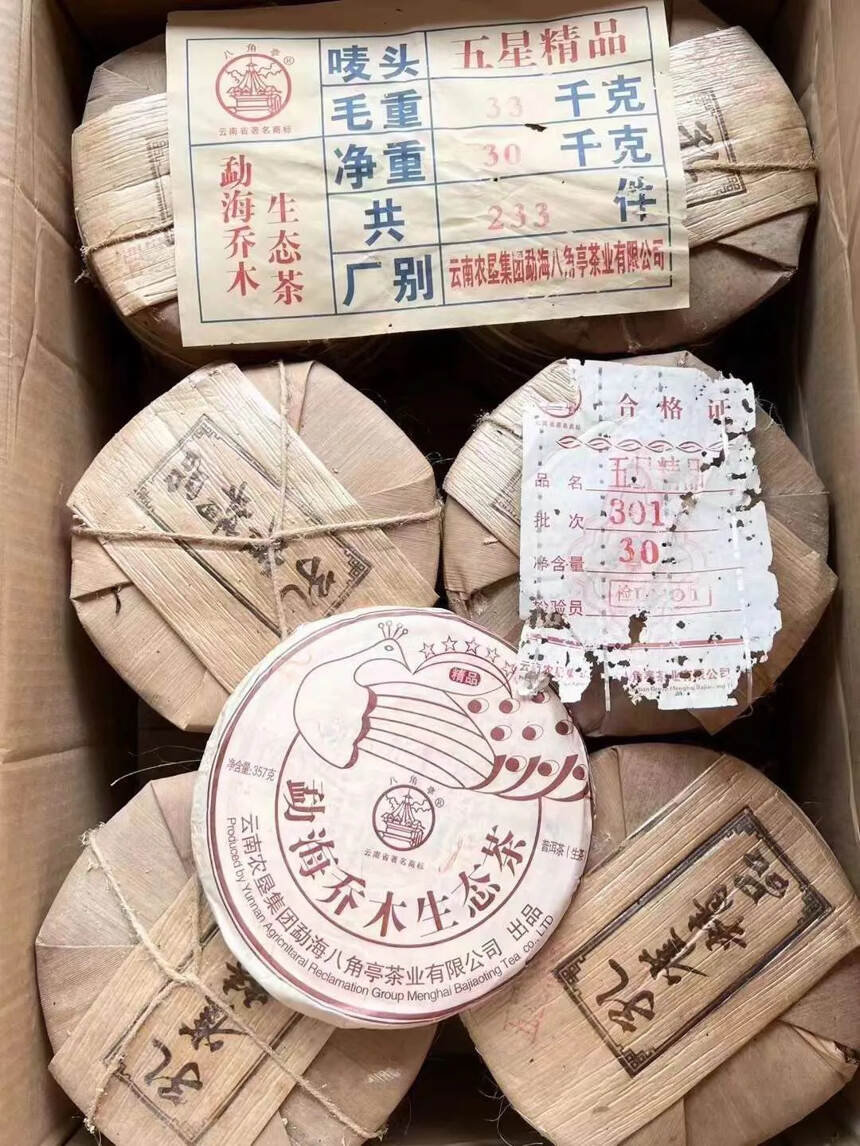 八角亭®
云南省著名商标
勐海乔木
生态茶
唛头 五星精品
毛重 33 千克
净重 30 千克
共 233 件
厂别 云南农垦集团勐海八角亭茶业有限公司
孔
孔雀精品
合格证
品名 五星精品
批次 301
净含量 30
检验员
有限公司
精品
净含量:357克
八角亭®
云南省著名商标
普洱茶(生茶
勐海乔木生态茶
云南农垦集团勐海八角亭茶业有限公司 出品
Produced by Yunnan Agricnltaral Reclamation Group Menghai Bajiaoting Tea co., LTD
孔雀
孔雀精品